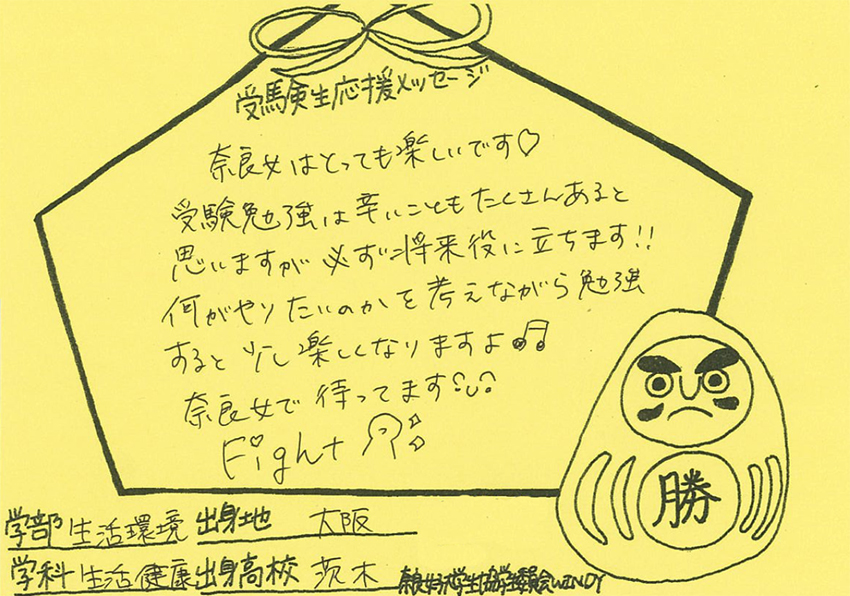 受験生応援メッセージ
奈良女はとっても楽しいです♡
受験勉強は辛いこともたくさんあると
思いますが必ず将来役に立ちます!!
何がやりたいのかを考えながら勉強
すると少し楽しくなりますよ♫
奈良女で待ってます
Fight
勝
学部 生活環境 出身地 大阪
学科 生活健康 出身高校 茨木
奈良女子大学生協学生委員会WINDY